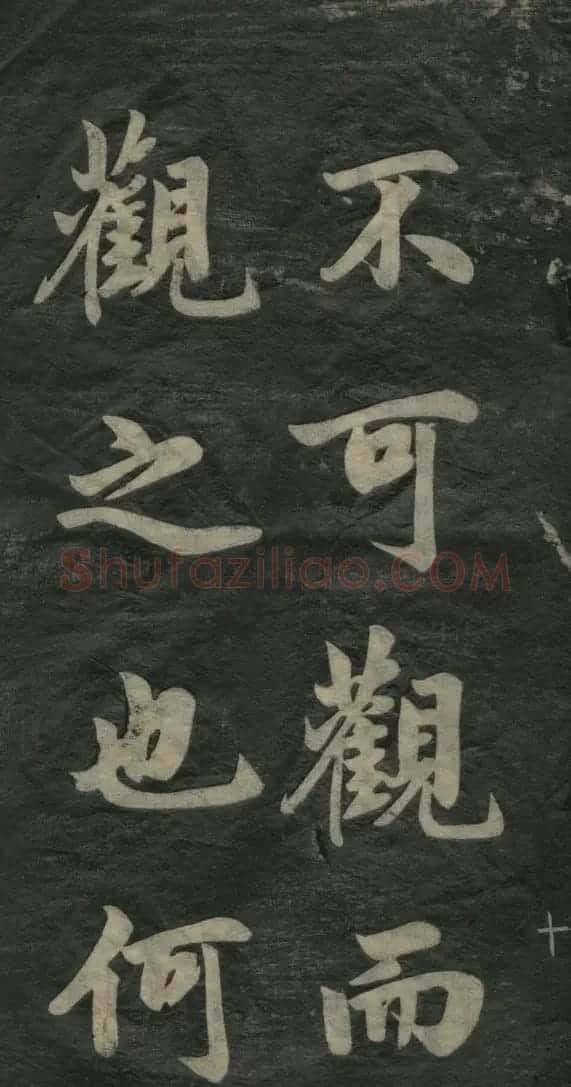 不可觀而
觀之也何
Shufaziliao.COM
十